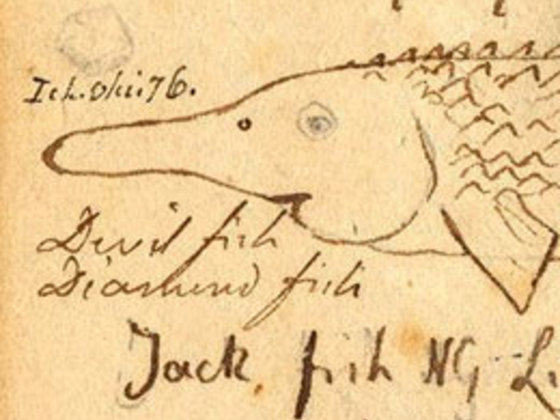 Ich. Ohi. 76.
Devil fish
Diamond fish
Jack fish NG